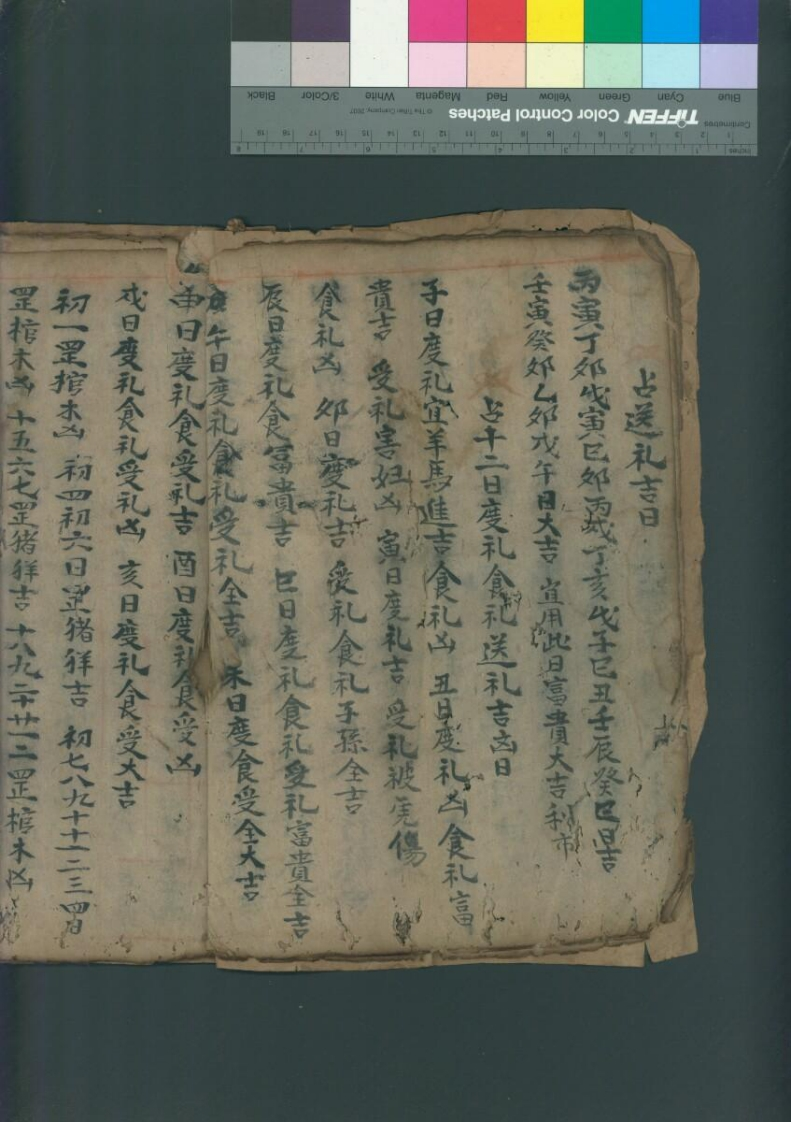 占送礼吉日
丙寅丁卯戊寅巳卯丙戌丁亥戊子巳丑壬辰癸巳日吉
壬寅癸卯乙卯戊午日大吉 宜用此日富貴大吉利市
占十二日度礼食礼送礼吉凶日
子日度礼宜羊馬進吉食礼凶 丑日度礼凶食礼富
貴吉 受礼害妇凶 寅日度礼吉 受礼被虎傷
食礼凶 卯日度礼吉 受礼食礼子孫全吉
辰日度礼食富貴吉 巳日度礼食礼受礼富貴全吉
午日度礼食礼受礼全吉 未日度食受全大吉
申日度礼食受礼吉 酉日度礼食受凶
戍日度礼食礼受礼凶 亥日度礼食受大吉
初一罡棺木凶 初四初六日罡猪牂吉 初七八九十十一二三四日
罡棺木凶 十五六七罡猪牂吉 十八九二十廿一二罡棺木凶
TIFFEN Color Control Patches
© The Tiffen Company, 2007
Centimetres
Inches
Blue Cyan Green Yellow Red Magenta White 3/Color Black